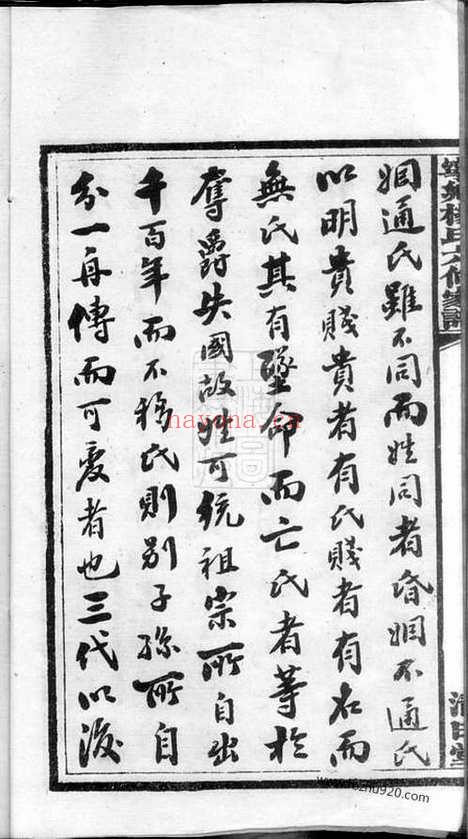 姻通氏雖不同而姓同者昏姻不通氏
以明貴賤貴者有氏賤者有右而
無氏其有墜命而亡氏者等於
奪爵失國故姓可統祖宗所自出
千百年而不移氏則別子孫所自
分一再傳而可變者也三代以後
楊氏六修家譜
清白堂
nayona.cn
www.ezhu920.com